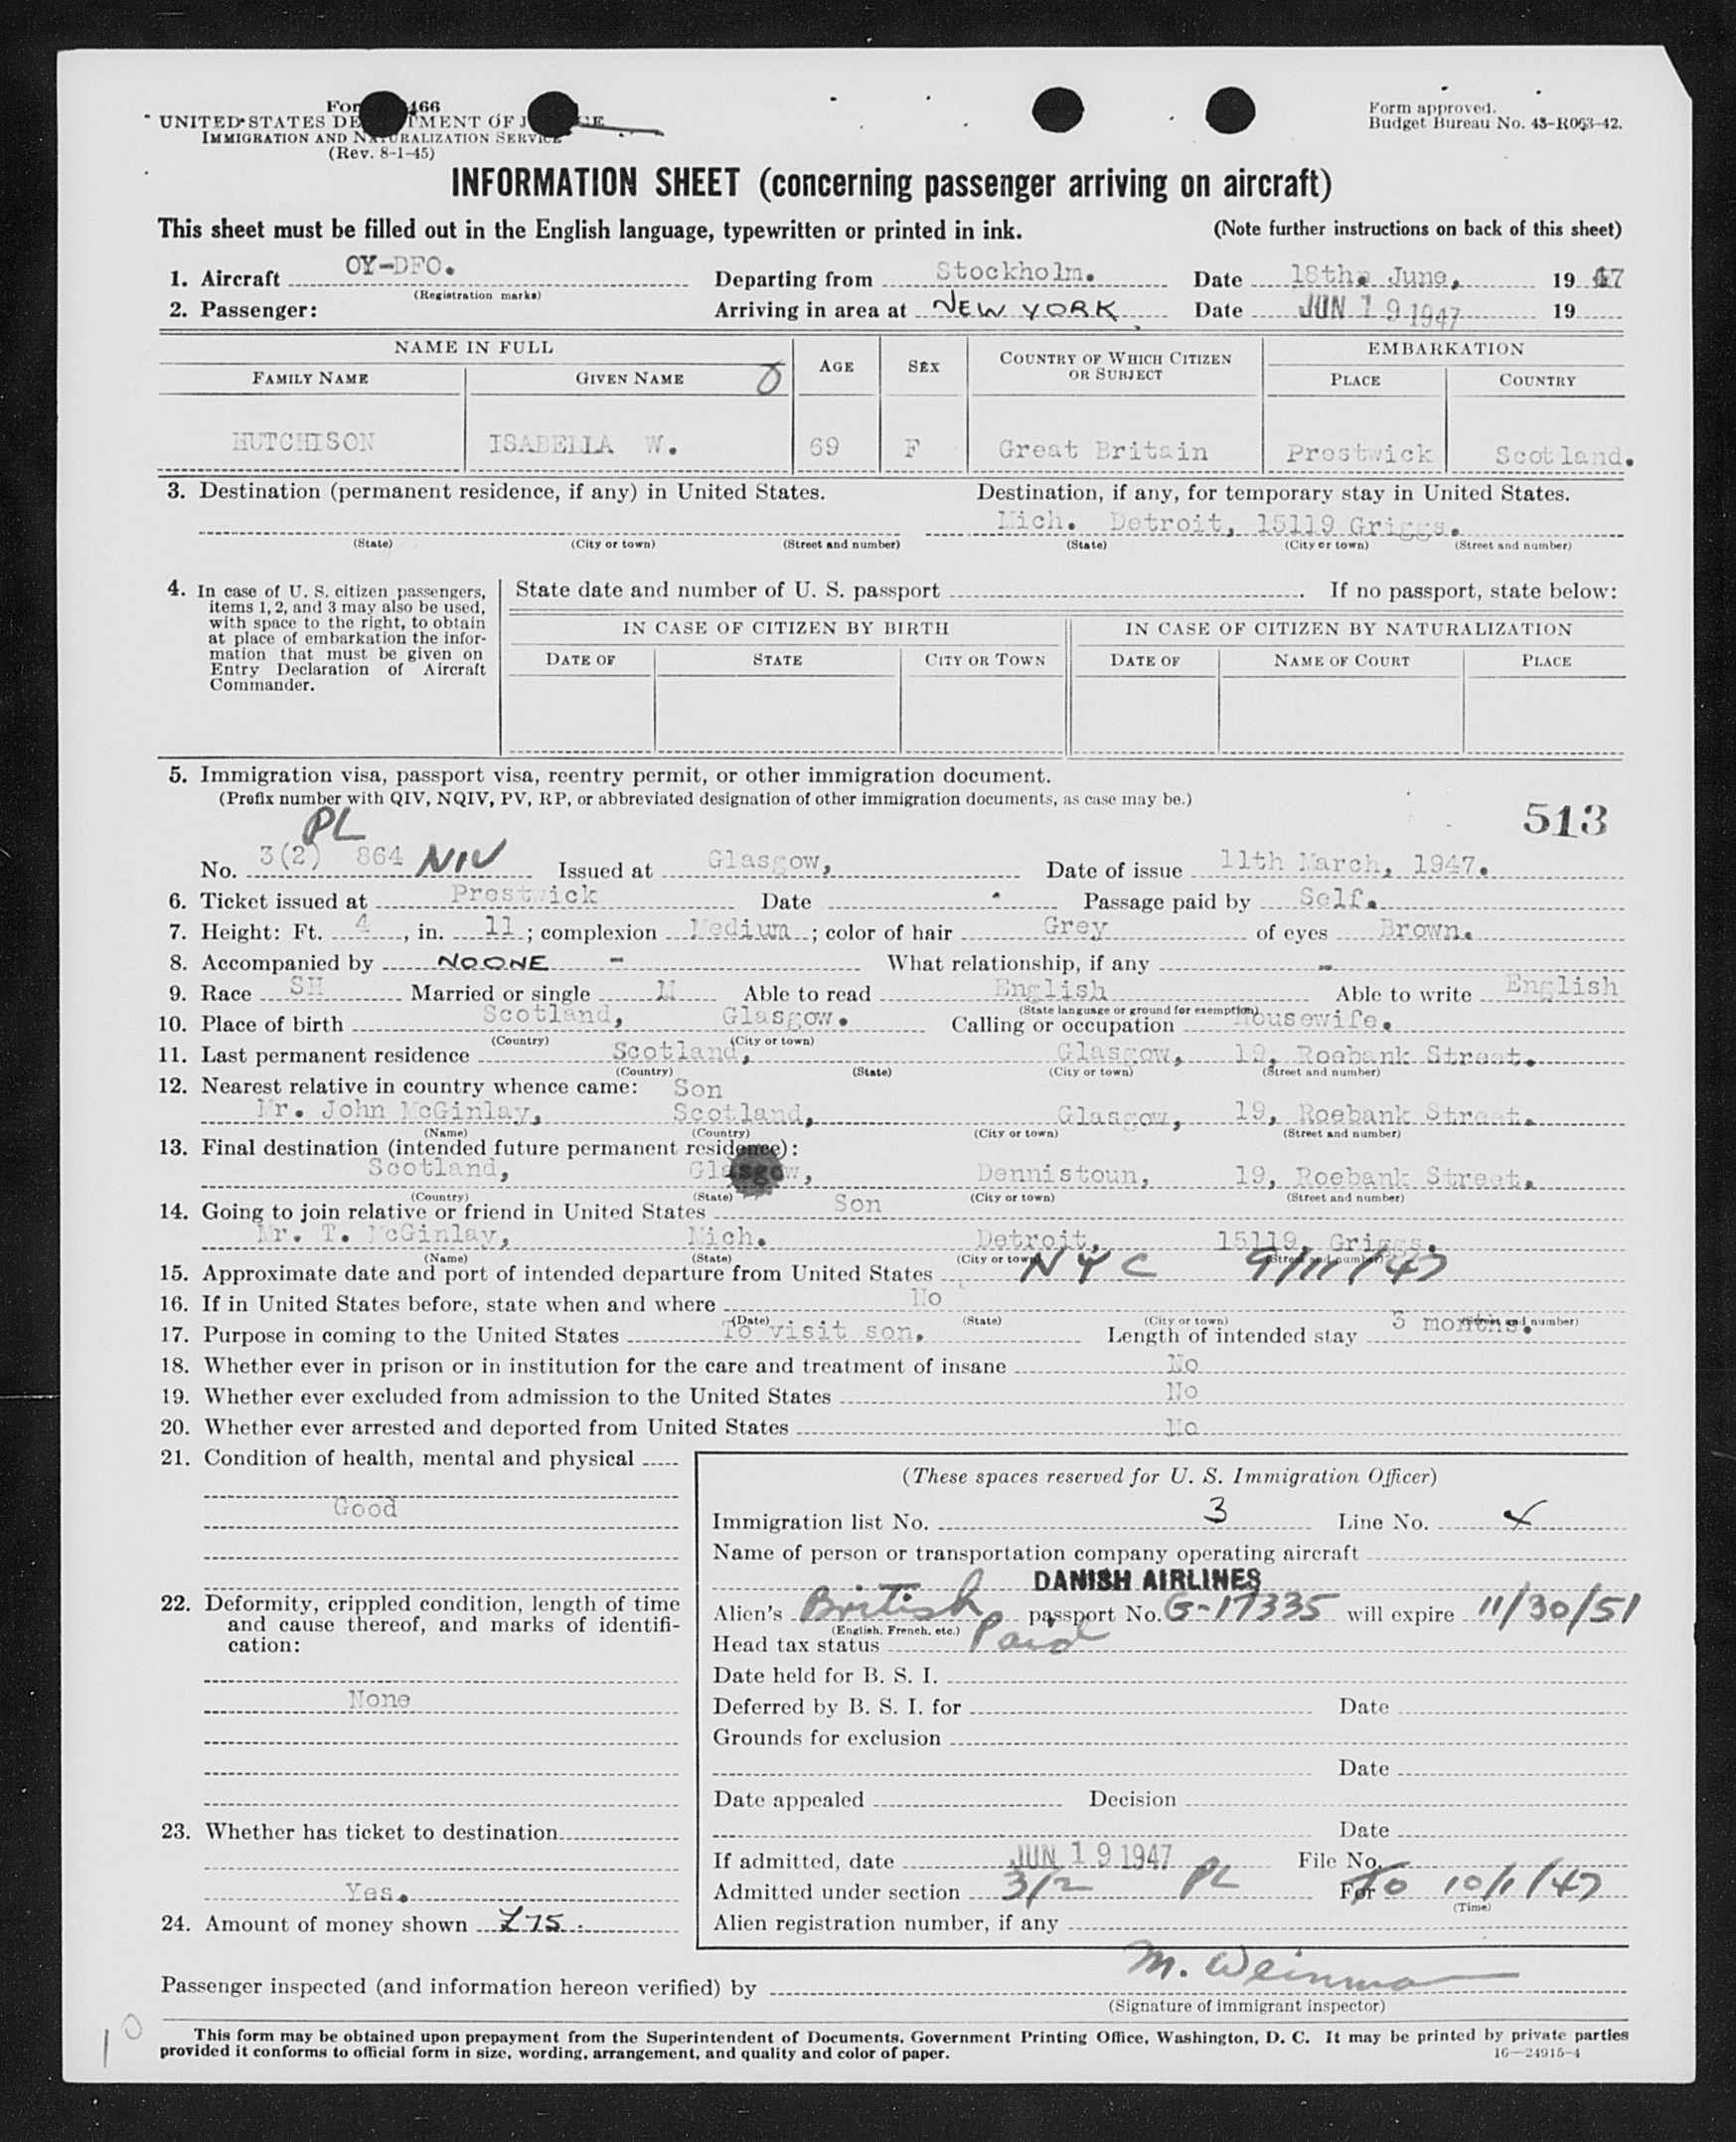 Form 466
UNITED STATES DEPARTMENT OF JUSTICE
IMMIGRATION AND NATURALIZATION SERVICE
(Rev. 8-1-45)
Form approved.
Budget Bureau No. 43-R063-42.
INFORMATION SHEET (concerning passenger arriving on aircraft)
This sheet must be filled out in the English language, typewritten or printed in ink. (Note further instructions on back of this sheet)
1. Aircraft OY-DFO. Departing from Stockholm. Date 18th. June, 1947
(Registration marks)
2. Passenger: Arriving in area at NEW YORK Date JUN 19 1947 19
NAME IN FULL AGE SEX COUNTRY OF WHICH CITIZEN OR SUBJECT EMBARKATION
FAMILY NAME GIVEN NAME PLACE COUNTRY
HUTCHISON ISABELLA W. 69 F Great Britain Prestwick Scotland.
3. Destination (permanent residence, if any) in United States. Destination, if any, for temporary stay in United States.
Mich. Detroit, 15119 Griggs.
(State) (City or town) (Street and number) (State) (City or town) (Street and number)
4. In case of U. S. citizen passengers, items 1, 2, and 3 may also be used, with space to the right, to obtain at place of embarkation the information that must be given on Entry Declaration of Aircraft Commander.
State date and number of U. S. passport . If no passport, state below:
IN CASE OF CITIZEN BY BIRTH IN CASE OF CITIZEN BY NATURALIZATION
DATE OF STATE CITY OR TOWN DATE OF NAME OF COURT PLACE
5. Immigration visa, passport visa, reentry permit, or other immigration document.
(Prefix number with QIV, NQIV, PV, RP, or abbreviated designation of other immigration documents, as case may be.)
513
PL
No. 3(2) 864 NIV Issued at Glasgow, Date of issue 11th March, 1947.
6. Ticket issued at Prestwick Date Passage paid by Self.
7. Height: Ft. 4, in. 11; complexion Medium; color of hair Grey of eyes Brown.
8. Accompanied by NO ONE - What relationship, if any -
9. Race SH Married or single M Able to read English Able to write English
(State language or ground for exemption)
10. Place of birth Scotland, Glasgow. Calling or occupation Housewife.
(Country) (City or town)
11. Last permanent residence Scotland, Glasgow, 19, Roebank Street.
(Country) (State) (City or town) (Street and number)
12. Nearest relative in country whence came: Son
Mr. John McGinlay, Scotland, Glasgow, 19, Roebank Street.
(Name) (Country) (City or town) (Street and number)
13. Final destination (intended future permanent residence):
Scotland, Glasgow, Dennistoun, 19, Roebank Street.
(Country) (State) (City or town) (Street and number)
14. Going to join relative or friend in United States Son
Mr. T. McGinlay, Mich. Detroit, 15119, Griggs.
(Name) (State) (City or town) (Street and number)
15. Approximate date and port of intended departure from United States NYC 9/11/47
16. If in United States before, state when and where No
(Date) (State) (City or town) (Street and number)
17. Purpose in coming to the United States To visit son. Length of intended stay 3 months.
18. Whether ever in prison or in institution for the care and treatment of insane No
19. Whether ever excluded from admission to the United States No
20. Whether ever arrested and deported from United States No
21. Condition of health, mental and physical
Good
22. Deformity, crippled condition, length of time and cause thereof, and marks of identification:
None
23. Whether has ticket to destination
Yes.
24. Amount of money shown £75.
(These spaces reserved for U. S. Immigration Officer)
Immigration list No. 3 Line No. 4
Name of person or transportation company operating aircraft
DANISH AIRLINES
Alien's British passport No. G-17335 will expire 11/30/51
(English, French, etc.)
Head tax status Paid
Date held for B. S. I.
Deferred by B. S. I. for Date
Grounds for exclusion
Date
Date appealed Decision
Date
If admitted, date JUN 19 1947 File No.
Admitted under section 3/2 PL For To 10/1/47
(Time)
Alien registration number, if any
Passenger inspected (and information hereon verified) by M. Weinman
(Signature of immigrant inspector)
This form may be obtained upon prepayment from the Superintendent of Documents, Government Printing Office, Washington, D. C. It may be printed by private parties
provided it conforms to official form in size, wording, arrangement, and quality and color of paper. 16—24915-4